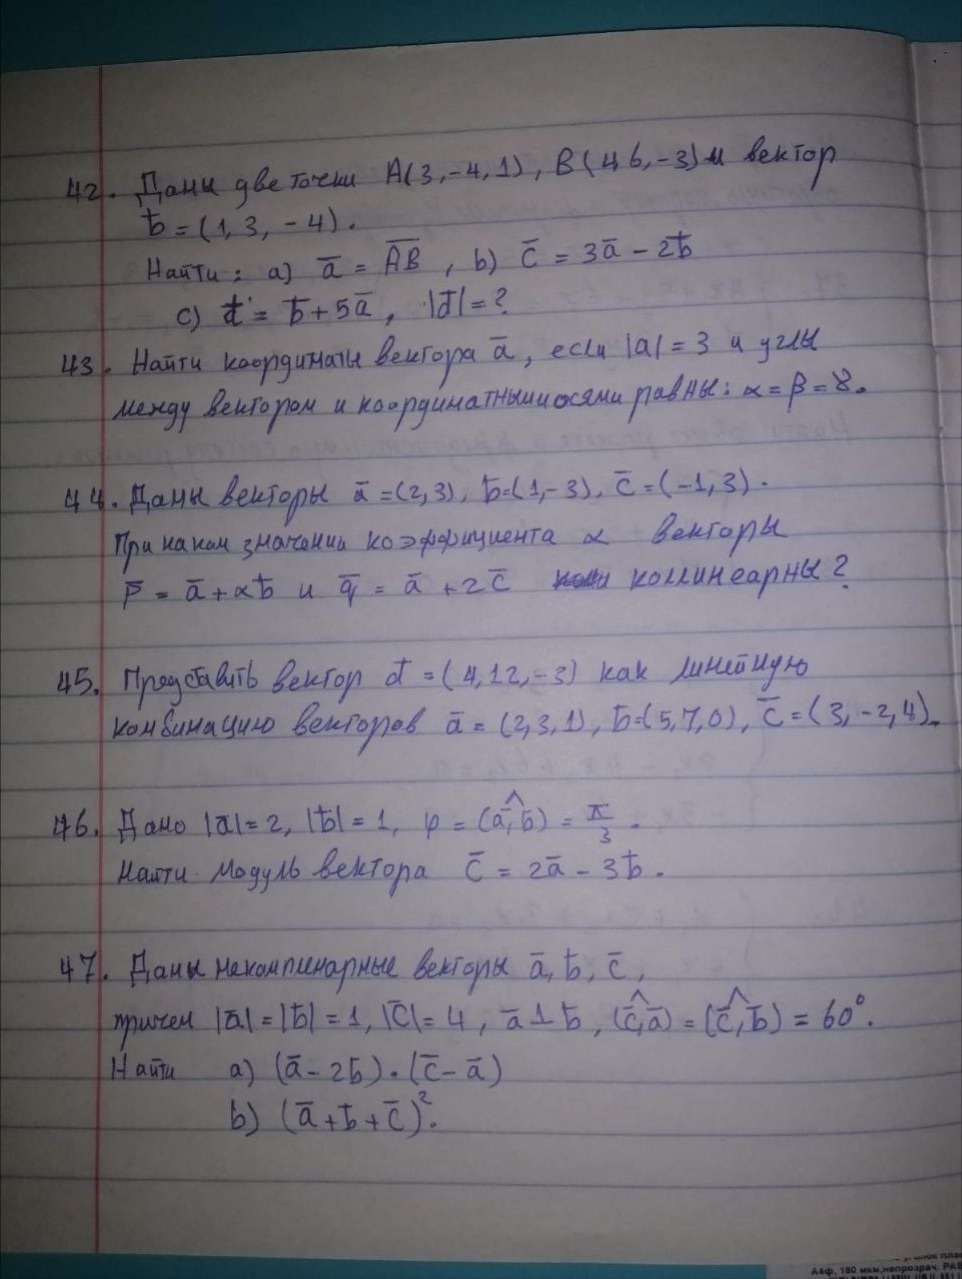 42. Даны две точки A(3,-4,1), B(4 6,-3) и вектор
b̄ = (1, 3, -4).
Найти: a) ā = A̅B̅, b) c̄ = 3ā - 2b̄
c) d̄ = b̄ + 5ā, |d̄| = ?
43. Найти координаты вектора ā, если |a| = 3 и углы
между вектором и координатными осями равны: α = β = γ.
44. Даны векторы ā = (2,3), b̄ = (1,-3), c̄ = (-1,3).
При каком значении коэффициента α векторы
p̄ = ā + αb̄ и q̄ = ā + 2c̄ коллинеарны?
45. Представить вектор d̄ = (4,12,-3) как линейную
комбинацию векторов ā = (2,3,1), b̄ = (5,7,0), c̄ = (3,-2,4).
46. Дано |ā| = 2, |b̄| = 1, φ = (ā,^b̄) = π/3.
Найти модуль вектора c̄ = 2ā - 3b̄.
47. Даны некомпланарные векторы ā, b̄, c̄,
причем |ā| = |b̄| = 1, |c̄| = 4, ā ⊥ b̄, (c̄,^ā) = (c̄,^b̄) = 60°.
Найти a) (ā - 2b̄) · (c̄ - ā)
b) (ā + b̄ + c̄)².
А4ф, 180 мкм, непрозрач.